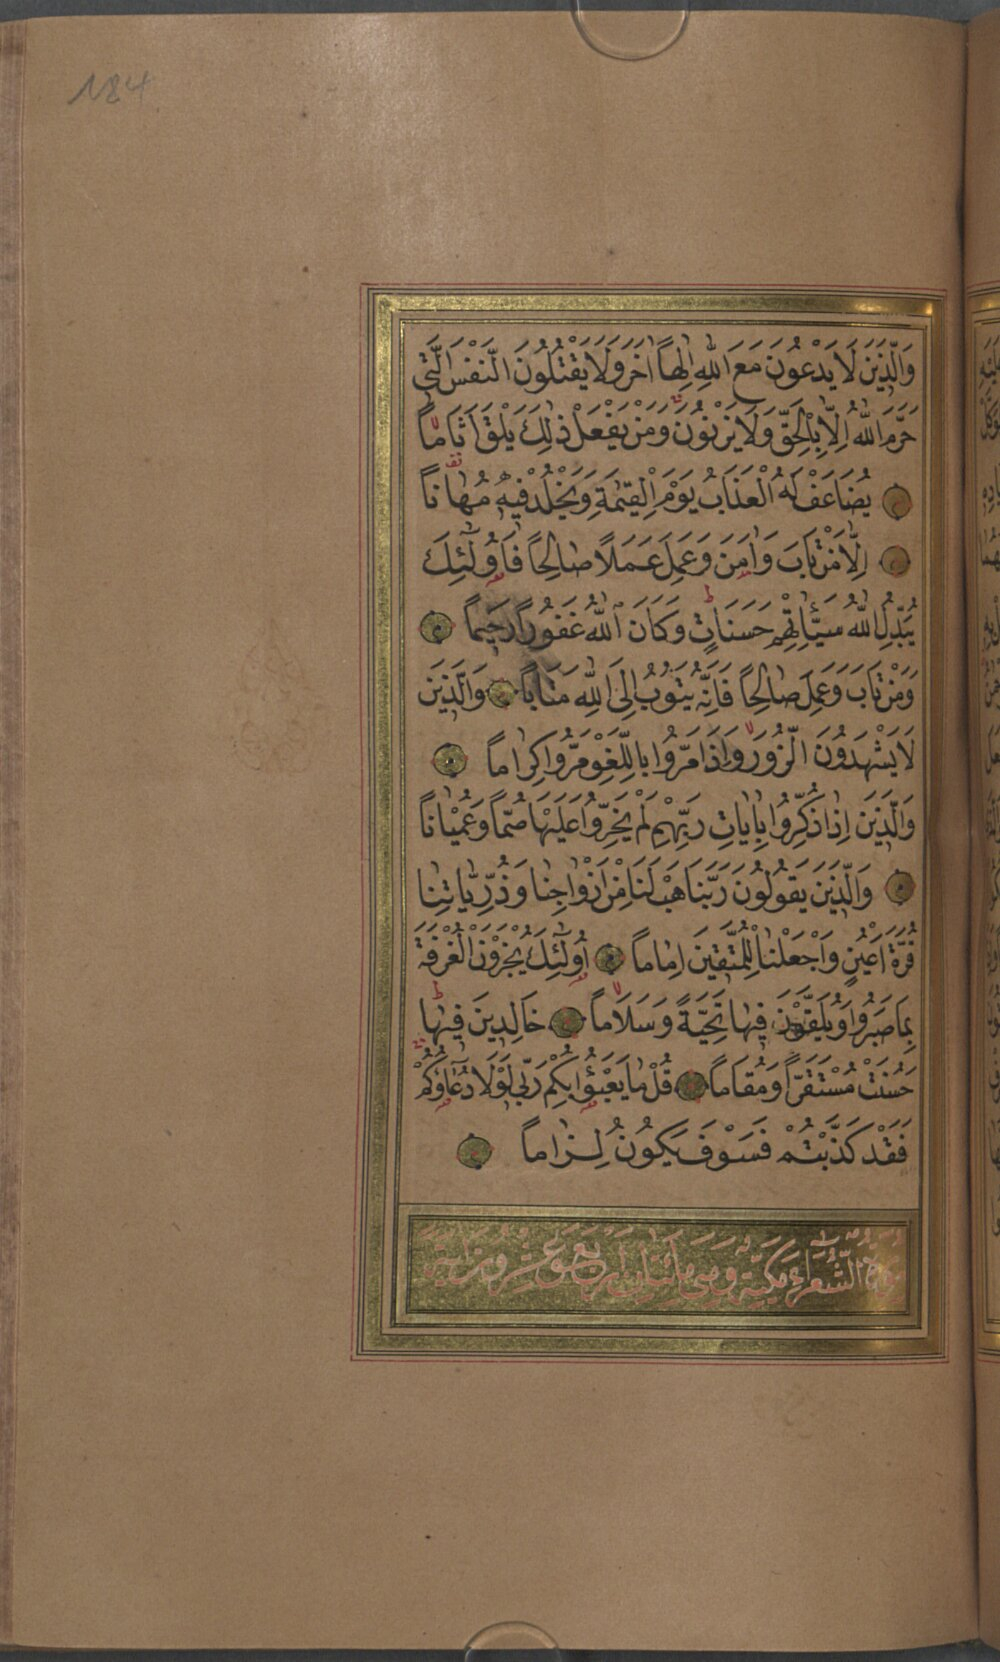 184
وَالَّذِينَ لَا يَدْعُونَ مَعَ اللّٰهِ اِلٰهًا اٰخَرَ وَلَا يَقْتُلُونَ النَّفْسَ الَّتِى
حَرَّمَ اللّٰهُ اِلَّا بِالْحَقِّ وَلَا يَزْنُونَ وَمَنْ يَفْعَلْ ذٰلِكَ يَلْقَ اَثَامًا
يُضَاعَفْ لَهُ الْعَذَابُ يَوْمَ الْقِيٰمَةِ وَيَخْلُدْ فِيهِ مُهَانًا
اِلَّا مَنْ تَابَ وَاٰمَنَ وَعَمِلَ عَمَلًا صَالِحًا فَاُولٰٓئِكَ
يُبَدِّلُ اللّٰهُ سَيِّـَٔاتِهِمْ حَسَنَاتٍ وَكَانَ اللّٰهُ غَفُورًا رَحِيمًا
وَمَنْ تَابَ وَعَمِلَ صَالِحًا فَاِنَّهُ يَتُوبُ اِلَى اللّٰهِ مَتَابًا وَالَّذِينَ
لَا يَشْهَدُونَ الزُّورَ وَاِذَا مَرُّوا بِاللَّغْوِ مَرُّوا كِرَامًا
وَالَّذِينَ اِذَا ذُكِّرُوا بِاٰيَاتِ رَبِّهِمْ لَمْ يَخِرُّوا عَلَيْهَا صُمًّا وَعُمْيَانًا
وَالَّذِينَ يَقُولُونَ رَبَّنَا هَبْ لَنَا مِنْ اَزْوَاجِنَا وَذُرِّيَّاتِنَا
قُرَّةَ اَعْيُنٍ وَاجْعَلْنَا لِلْمُتَّقِينَ اِمَامًا اُولٰٓئِكَ يُجْزَوْنَ الْغُرْفَةَ
بِمَا صَبَرُوا وَيُلَقَّوْنَ فِيهَا تَحِيَّةً وَسَلَامًا خَالِدِينَ فِيهَا
حَسُنَتْ مُسْتَقَرًّا وَمُقَامًا قُلْ مَا يَعْبَؤُا بِكُمْ رَبِّى لَوْلَا دُعَاؤُكُمْ
فَقَدْ كَذَّبْتُمْ فَسَوْفَ يَكُونُ لِزَامًا
سُورَةُ الشُّعَرَاءِ مَكِّيَّة وَهِىَ مِائَتَانِ اَرْبَع وَعِشْرُونَ اٰيَة